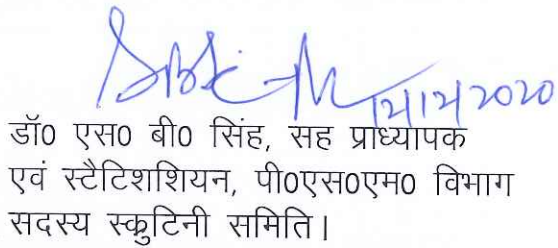 12/12/2020
डॉ0 एस0 बी0 सिंह, सह प्राध्यापक
एवं स्टैटिशशियन, पी0एस0एम0 विभाग
सदस्य स्क्रुटिनी समिति।